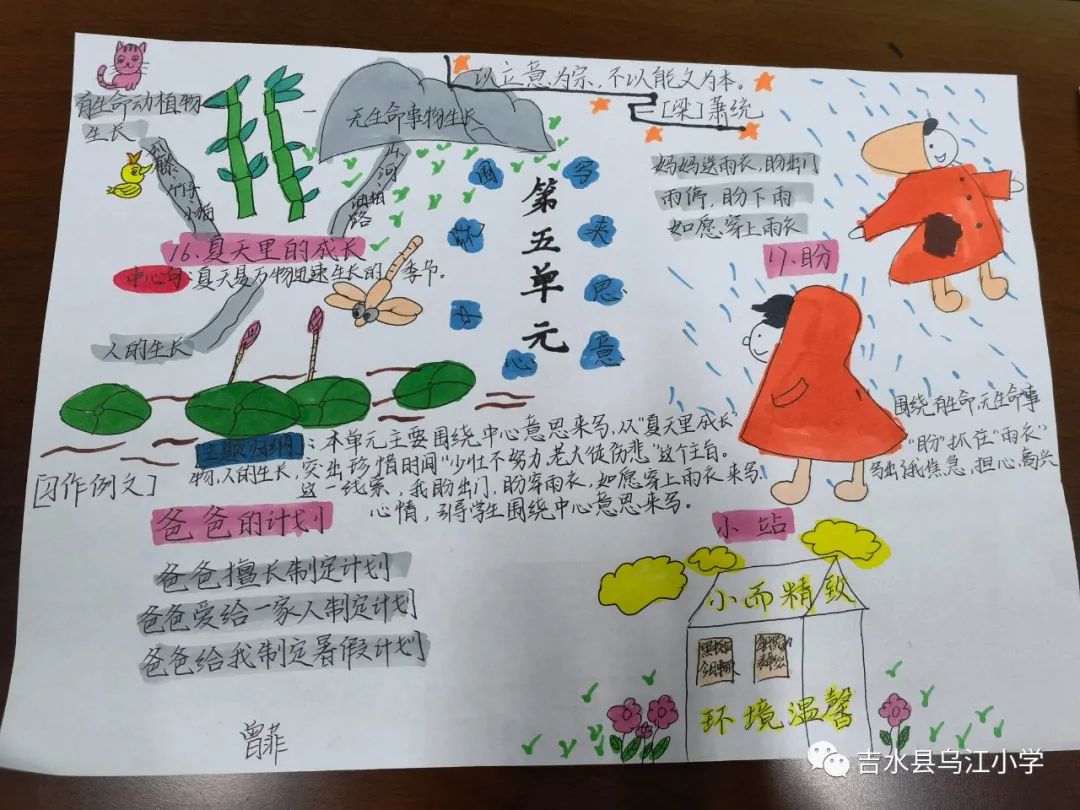 以立意为宗，不以能文为本。
—[梁]萧统
有生命动植物
生长
竹子
小猫
无生命事物生长
山
河
铁轨
路
16、夏天里的成长
中心句：夏天是万物迅速生长的季节。
人的生长
第五单元
围绕中心
写来思意
妈妈送雨衣，盼出门
雨停，盼下雨
如愿，穿上雨衣
17、盼
主题归纳：本单元主要围绕中心意思来写，从“夏天里成长”围绕有生命，无生命事
物，人的生长，突出珍惜时间“少壮不努力，老大徒伤悲”这个主旨。“盼”抓住“雨衣”
这一线索，我盼出门，盼穿雨衣，如愿穿上雨衣来写，写出我焦急，担心，高兴
心情，引导学生围绕中心意思来写。
[习作例文]
爸爸的计划
爸爸擅长制定计划
爸爸爱给一家人制定计划
爸爸给我制定暑假计划
小站
小而精致
环境温馨
曾菲
吉水县乌江小学